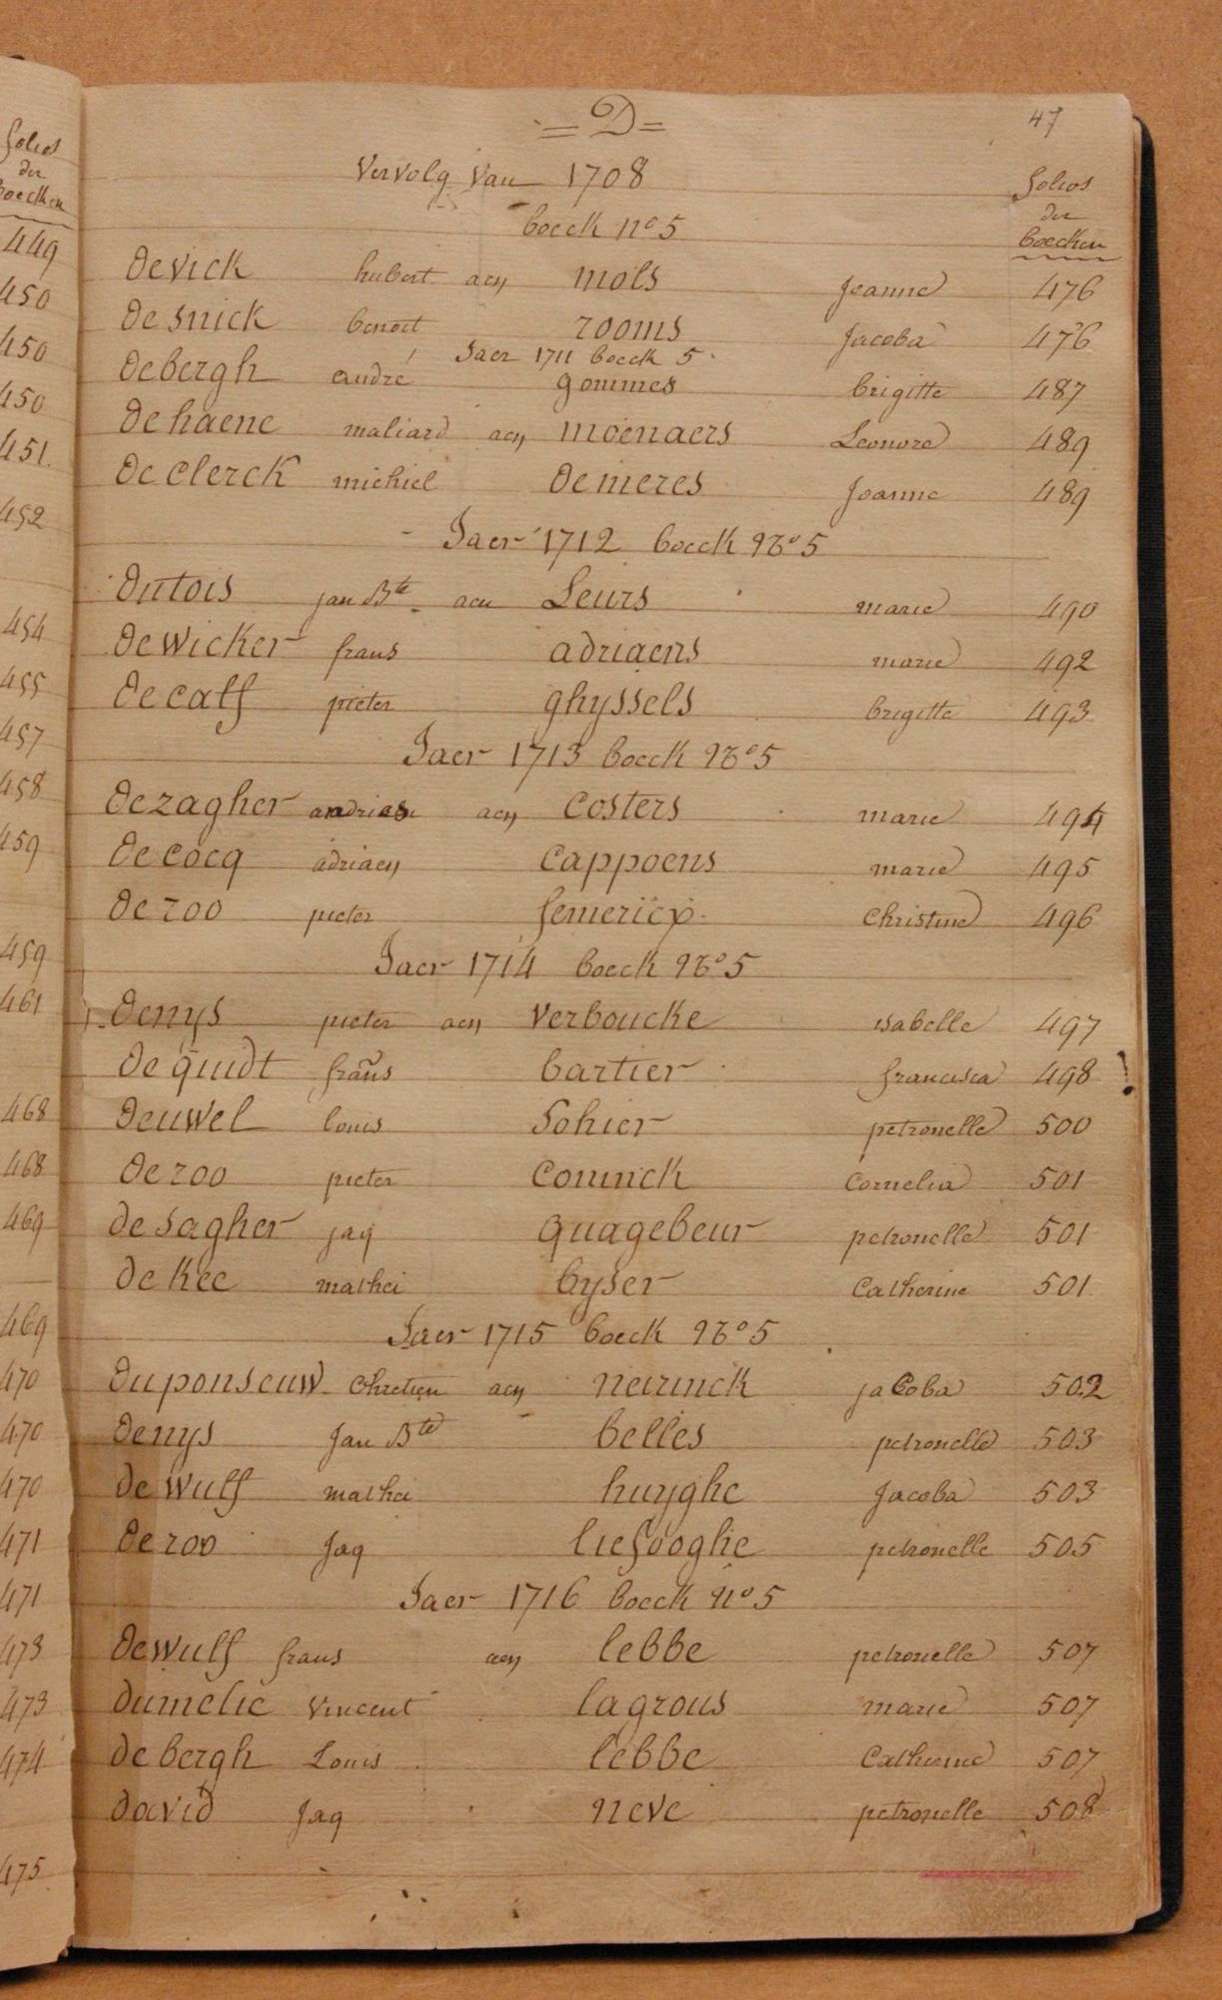 folios
der
boecken
449
450
450
450
451
452
454
455
457
458
459
459
461
468
468
469
469
470
470
470
471
471
473
473
474
475
= D =
47
Vervolg van 1708
folios
der
boecken
boeck no 5
devick hubert aen mols Jeanne 476
desnick benoit rooms Jacoba 476
Jaer 1711 boeck 5
debergh andré gommes brigitte 487
dehaene maliard aen moenaers Leonore 489
declerck michiel demeres Joanne 489
Jaer 1712 boeck No 5
dutois jan Bte aen Leurs marie 490
dewicker frans adriaens marie 492
decalf pieter ghyssels brigitte 493
Jaer 1713 boeck No 5
dezagher aen costers marie 494
decocq adriaen cappoens marie 495
deroo pieter femericx christine 496
Jaer 1714 boeck No 5
denys pieter aen verboucke isabelle 497
dequidt frans bartier francisca 498 !
deuwel louis Sohier petronelle 500
deroo pieter coninck cornelia 501
desagher jaq quagebeur petronelle 501
dekee mathei byser Catherine 501
Jaer 1715 boeck No 5
duponseuw chretien aen neirinck jacoba 502
denys Jan Bte belles petronelle 503
dewulf mathei huyghe Jacoba 503
deroo Jaq liefooghe petronelle 505
Jaer 1716 boeck no 5
dewulf frans aen lebbe petronelle 507
dumelie vincent lagrous marie 507
debergh Louis lebbe Catherine 507
david Jaq neve petronelle 508